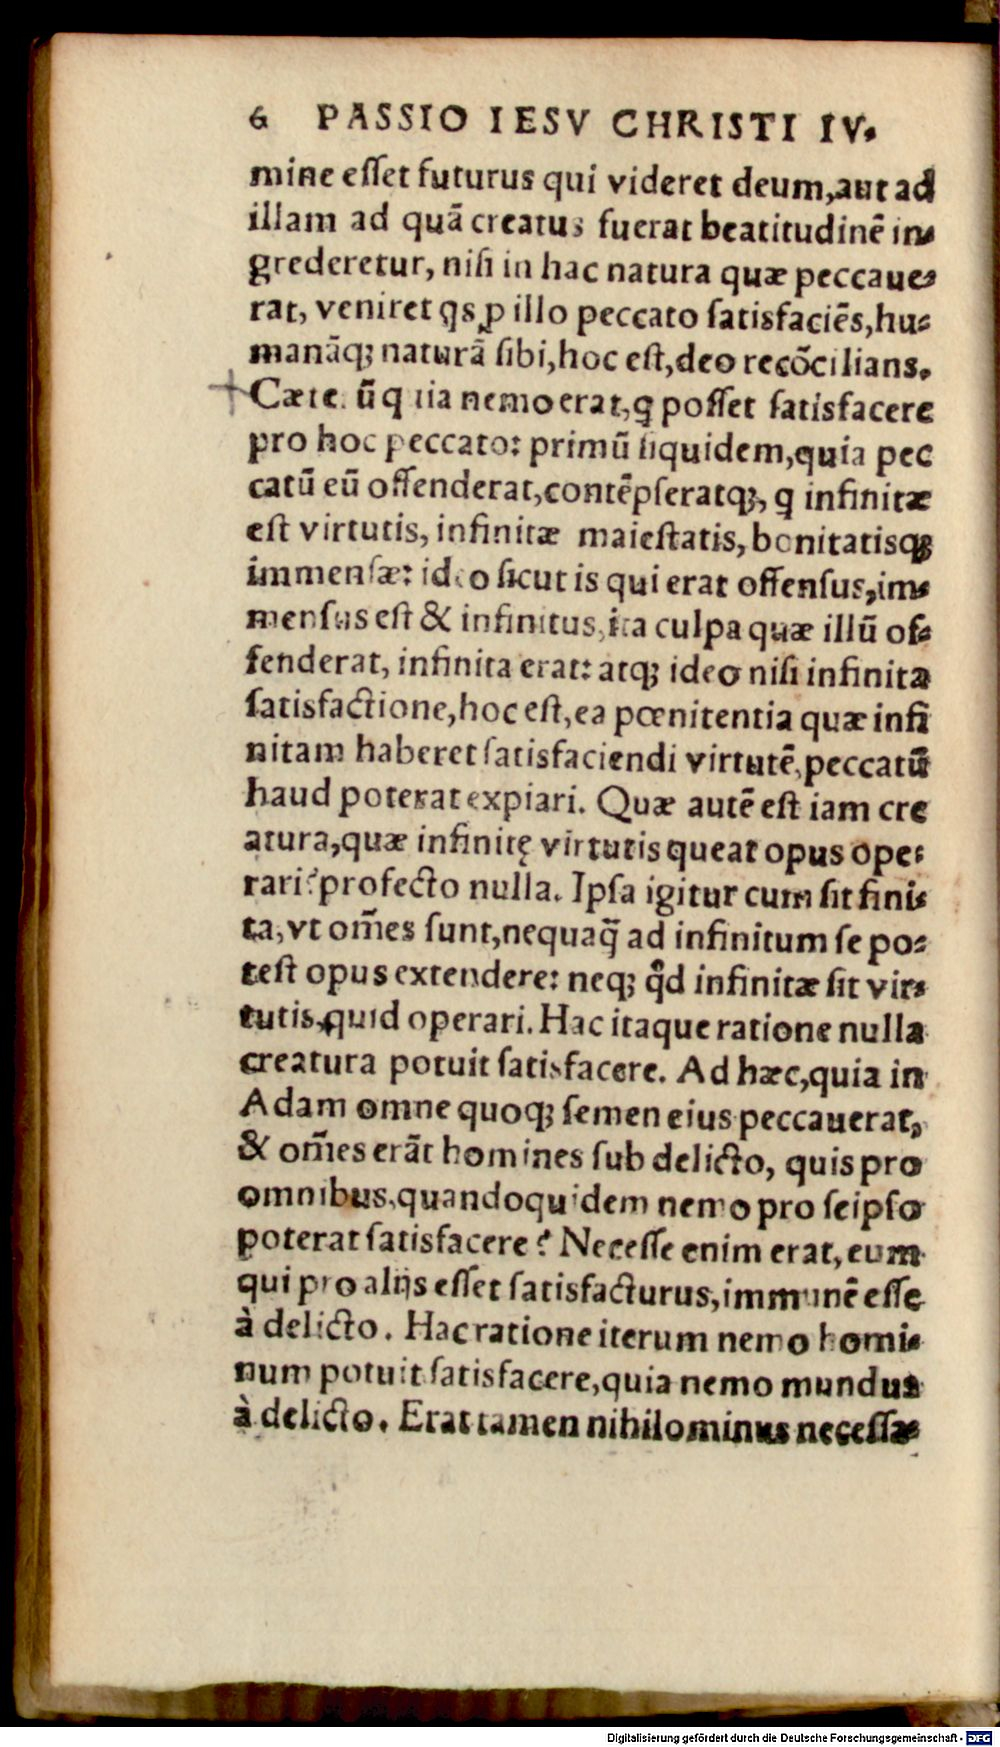 6 PASSIO IESV CHRISTI IV.
mine eſſet futurus qui videret deum, aut ad
illam ad quã creatus fuerat beatitudinẽ in-
grederetur, niſi in hac natura quæ peccaue-
rat, veniret qs ꝓ illo peccato ſatisfaciẽs, hu-
manãq; naturã ſibi, hoc eſt, deo recõcilians.
Cæterũ quia nemo erat, q poſſet ſatisfacere
pro hoc peccato: primũ ſiquidem, quia pec
catũ eũ offenderat, contẽpſeratq;, q infinitæ
eſt virtutis, infinitæ maieſtatis, bonitatisq;
immenſæ: ideo ſicut is qui erat offenſus, im-
menſus eſt & infinitus, ita culpa quæ illũ of-
fenderat, infinita erat: atq; ideo niſi infinita
ſatisfactione, hoc eſt, ea pœnitentia quæ infi
nitam haberet ſatisfaciendi virtutẽ, peccatũ
haud poterat expiari. Quæ autẽ eſt iam cre
atura, quæ infinitę virtutis queat opus ope-
rari? profecto nulla. Ipſa igitur cum ſit fini-
ta, vt om̃es ſunt, nequaq̃ ad infinitum ſe po-
teſt opus extendere: neq; qd infinitæ ſit vir-
tutis, quid operari. Hac itaque ratione nulla
creatura potuit ſatisfacere. Ad hæc, quia in
Adam omne quoq; ſemen eius peccauerat,
& om̃es erãt homines ſub delicto, quis pro
omnibus, quandoquidem nemo pro ſeipſo
poterat ſatisfacere? Neceſſe enim erat, eum
qui pro alijs eſſet ſatisfacturus, immunẽ eſſe
à delicto. Hac ratione iterum nemo homi-
num potuit ſatisfacere, quia nemo mundus
à delicto. Erat tamen nihilominus neceſſa-
Digitalisierung gefördert durch die Deutsche Forschungsgemeinschaft - DFG